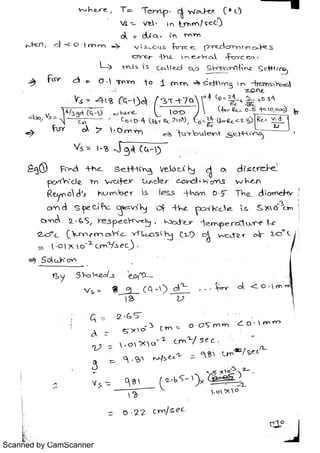 where, T= Temp. of water (°C)
Vs = vel. in (mm/sec)
d = dia. in mm
when, d < 0.1mm ⇒ viscous force predominates
over the inertial forces.
↳ this is called as Streamline Settling
⇒ for d = 0.1 mm to 1 mm ⇒ Settling in transitional zone
Vs = 418 (G-1)d (3T+70 / 100)
also, Vs = √(4/3 gd (G-1) / CD) where
for d > 1.0mm ⇒ turbulent settling
Vs = 1.8 √gd (G-1)
Eg① Find the settling velocity of a discrete
particle in water under conditions when
Reynold's number is less than 0.5. The diameter
and specific gravity of the particle is 5×10⁻³cm
and 2.65, respectively, water temperature is
20°C (kinematic viscosity (ν) of water at 20°C
= 1.01×10⁻² cm²/sec).
⇒ Solution
By Stoke's eqn.
Vs = g/18 (G-1) d²/ν ... for d < 0.1mm
G = 2.65
d = 5×10⁻³ cm = 0.05mm < 0.1mm
ν = 1.01×10⁻² cm²/sec.
g = 9.81 m/sec² = 981 cm/sec²
Vs = 981/18 (2.65-1) × (5×10⁻³)² / 1.01×10⁻²
= 0.22 cm/sec
Scanned by CamScanner